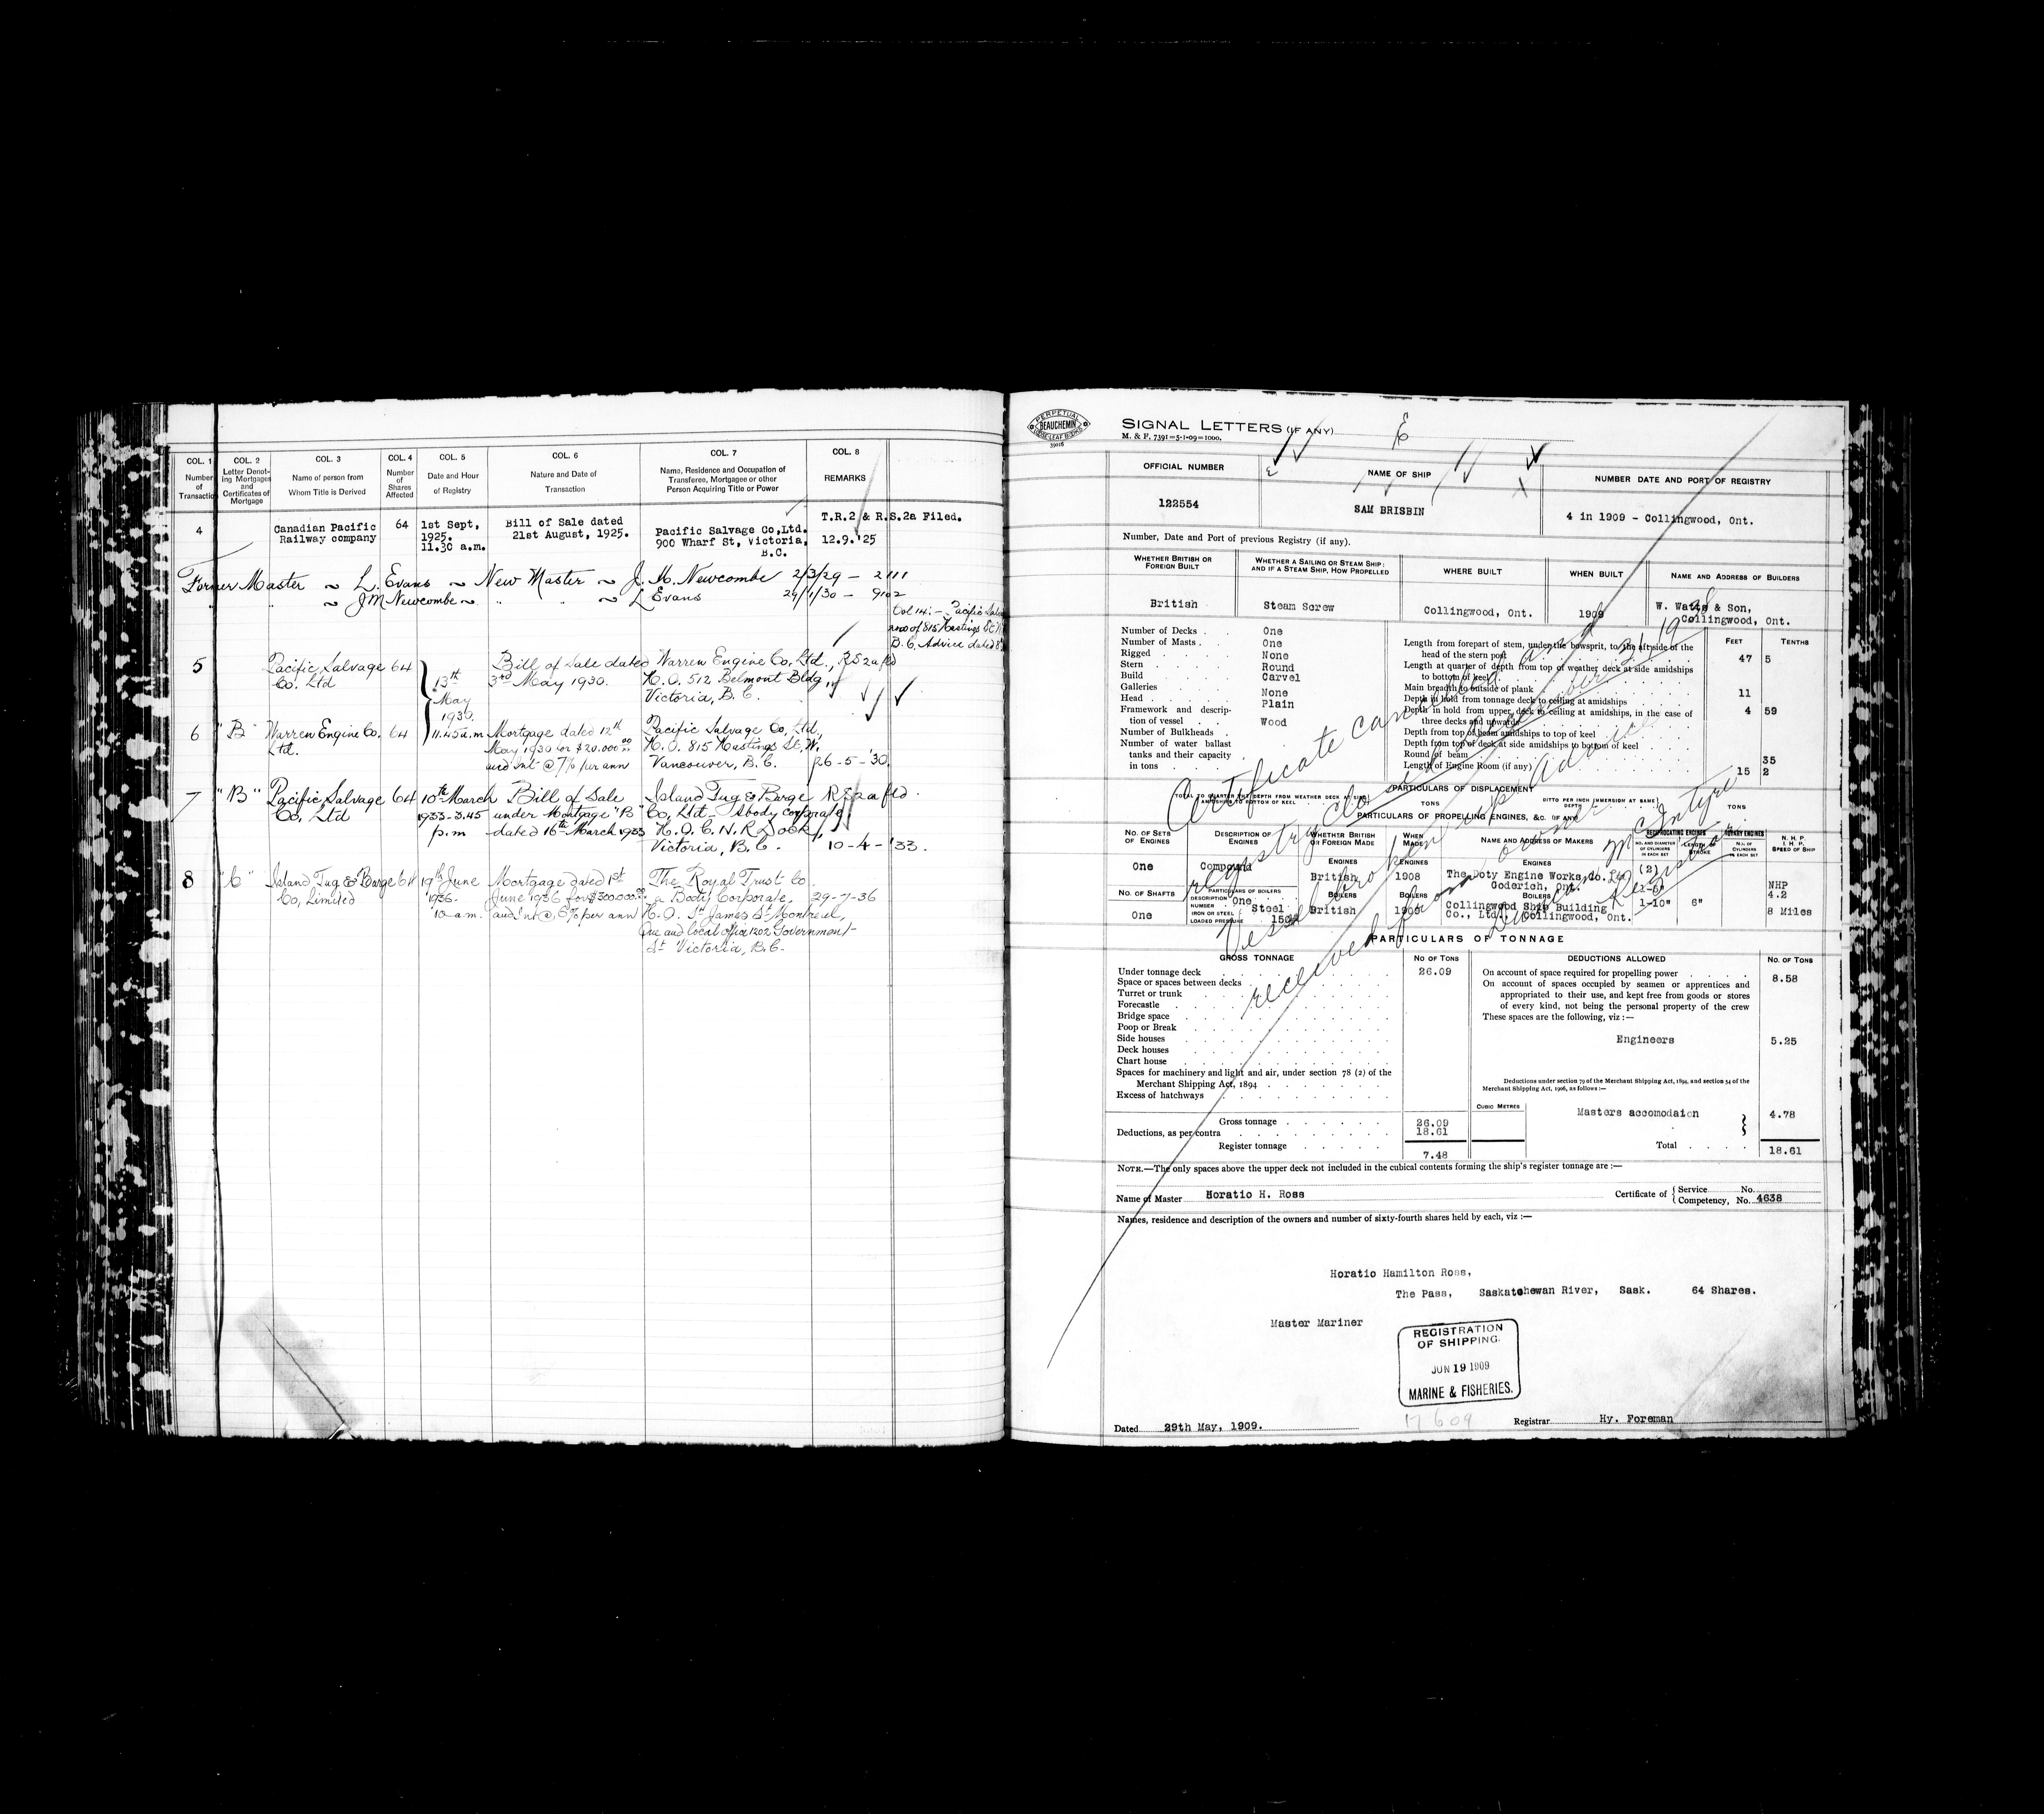 COL. 1 COL. 2 COL. 3 COL. 4 COL. 5 COL. 6 COL. 7 COL. 8
Number of Transaction
Letter Denoting Mortgages and Certificates of Mortgage
Name of person from Whom Title is Derived
Number of Shares Affected
Date and Hour of Registry
Nature and Date of Transaction
Name, Residence and Occupation of Transferee, Mortgagee or other Person Acquiring Title or Power
REMARKS
4 Canadian Pacific Railway company 64 1st Sept, 1925. 11.30 a.m. Bill of Sale dated 21st August, 1925. Pacific Salvage Co,Ltd. 900 Wharf St, Victoria, B.C. T.R.2 & R.S.2a Filed. 12.9.'25
Former Master ~ L. Evans ~ New Master ~ J. M. Newcombe 2/3/29 – 2111
" " ~ J M Newcombe ~ " " ~ L Evans 29/1/30 – 9102
Col 14:- Pacific
now of 815 Hastings St
B.C. Advice dated
5 Pacific Salvage Co. Ltd 64 13th May 1930. 11.45 a.m Bill of Sale dated 3rd May 1930. Warren Engine Co. Ltd., H.O. 512 Belmont Bldg, Victoria, B.C. RS2a fld
6 "B" Warren Engine Co. Ltd. 64 Mortgage dated 12th May 1930 for $20.000.00 and Int @ 7% per ann Pacific Salvage Co, Ltd, H.O. 815 Hastings St, W. Vancouver, B.C. 26-5-'30.
7 "B" Pacific Salvage Co, Ltd 64 10th March 1933-3.45 p.m Bill of Sale under Mortgage "B" dated 16th March 1933 Island Tug & Barge Co, Ltd – A body corporate, H.O. C.N.R Dock, Victoria, B.C. RS2a fld 10-4-'33.
8 "C" Island Tug & Barge Co, Limited 64 19th June 1936- 10 a-m. Mortgage dated 1st June 1936 for $300.000.00 and Int @ 6% per ann The Royal Trust Co. a Body Corporate, H.O. St James St Montreal, Que and local office 1202 Government St Victoria, B.C- 29-7-36
PERPETUAL
BEAUCHEMIN
LOOSE LEAF BOOKS
SIGNAL LETTERS (IF ANY)
M. & F. 7391=5-1-09=1000.
OFFICIAL NUMBER NAME OF SHIP NUMBER DATE AND PORT OF REGISTRY
122554 SAM BRISBIN 4 in 1909 - Collingwood, Ont.
Number, Date and Port of previous Registry (if any).
WHETHER BRITISH OR FOREIGN BUILT
WHETHER A SAILING OR STEAM SHIP: AND IF A STEAM SHIP, HOW PROPELLED
WHERE BUILT WHEN BUILT NAME AND ADDRESS OF BUILDERS
British Steam Screw Collingwood, Ont. 1909 W. Watts & Son, Collingwood, Ont.
Number of Decks One
Number of Masts One
Rigged None
Stern Round
Build Carvel
Galleries None
Head Plain
Framework and description of vessel Wood
Number of Bulkheads
Number of water ballast tanks and their capacity in tons
FEET TENTHS
Length from forepart of stem, under the bowsprit, to the aft side of the head of the stern post 47 5
Length at quarter of depth from top of weather deck at side amidships to bottom of keel
Main breadth to outside of plank 11
Depth in hold from tonnage deck to ceiling at amidships 4 59
Depth in hold from upper deck to ceiling at amidships, in the case of three decks and upwards
Depth from top of beam amidships to top of keel
Depth from top of deck at side amidships to bottom of keel
Round of beam 35
Length of Engine Room (if any) 15 2
Certificate cancelled and
registry closed
Vessel broken up. Advice
received from owner
PARTICULARS OF DISPLACEMENT
TOTAL TO QUARTER THE DEPTH FROM WEATHER DECK AT SIDE AMIDSHIPS TO BOTTOM OF KEEL TONS DITTO PER INCH IMMERSION AT SAME DEPTH TONS
PARTICULARS OF PROPELLING ENGINES, &C. (IF ANY)
NO. OF SETS OF ENGINES DESCRIPTION OF ENGINES WHETHER BRITISH OR FOREIGN MADE WHEN MADE NAME AND ADDRESS OF MAKERS RECIPROCATING ENGINES ROTARY ENGINES N. H. P. I. H. P. SPEED OF SHIP
One Compound ENGINES British ENGINES 1908 ENGINES The Doty Engine Works Co. Goderich, Ont.
NO. OF SHAFTS PARTICULARS OF BOILERS DESCRIPTION NUMBER IRON OR STEEL LOADED PRESSURE
One One Steel BOILERS British BOILERS BOILERS Collingwood Ship Building Co., Ltd., Collingwood, Ont. 1-10" 6" NHP 4.2 8 Miles
PARTICULARS OF TONNAGE
GROSS TONNAGE NO OF TONS DEDUCTIONS ALLOWED NO. OF TONS
Under tonnage deck 26.09
Space or spaces between decks
Turret or trunk
Forecastle
Bridge space
Poop or Break
Side houses
Deck houses
Chart house
Spaces for machinery and light and air, under section 78 (2) of the Merchant Shipping Act, 1894
Excess of hatchways
Gross tonnage 26.09
Deductions, as per contra 18.61
Register tonnage 7.48
On account of space required for propelling power 8.58
On account of spaces occupied by seamen or apprentices and appropriated to their use, and kept free from goods or stores of every kind, not being the personal property of the crew
These spaces are the following, viz :—
Engineers 5.25
Deductions under section 79 of the Merchant Shipping Act, 1894, and section 54 of the Merchant Shipping Act, 1906, as follows :—
CUBIC METRES
Masters accomodaion 4.78
Total 18.61
NOTE.—The only spaces above the upper deck not included in the cubical contents forming the ship's register tonnage are :—
Name of Master Horatio H. Ross Certificate of { Service No. Competency, No. 4638
Names, residence and description of the owners and number of sixty-fourth shares held by each, viz :—
Horatio Hamilton Ross,
The Pass, Saskatchewan River, Sask. 64 Shares.
Master Mariner
REGISTRATION
OF SHIPPING.
JUN 19 1909
MARINE & FISHERIES.
17609
Dated 29th May, 1909. Registrar Hy. Foreman